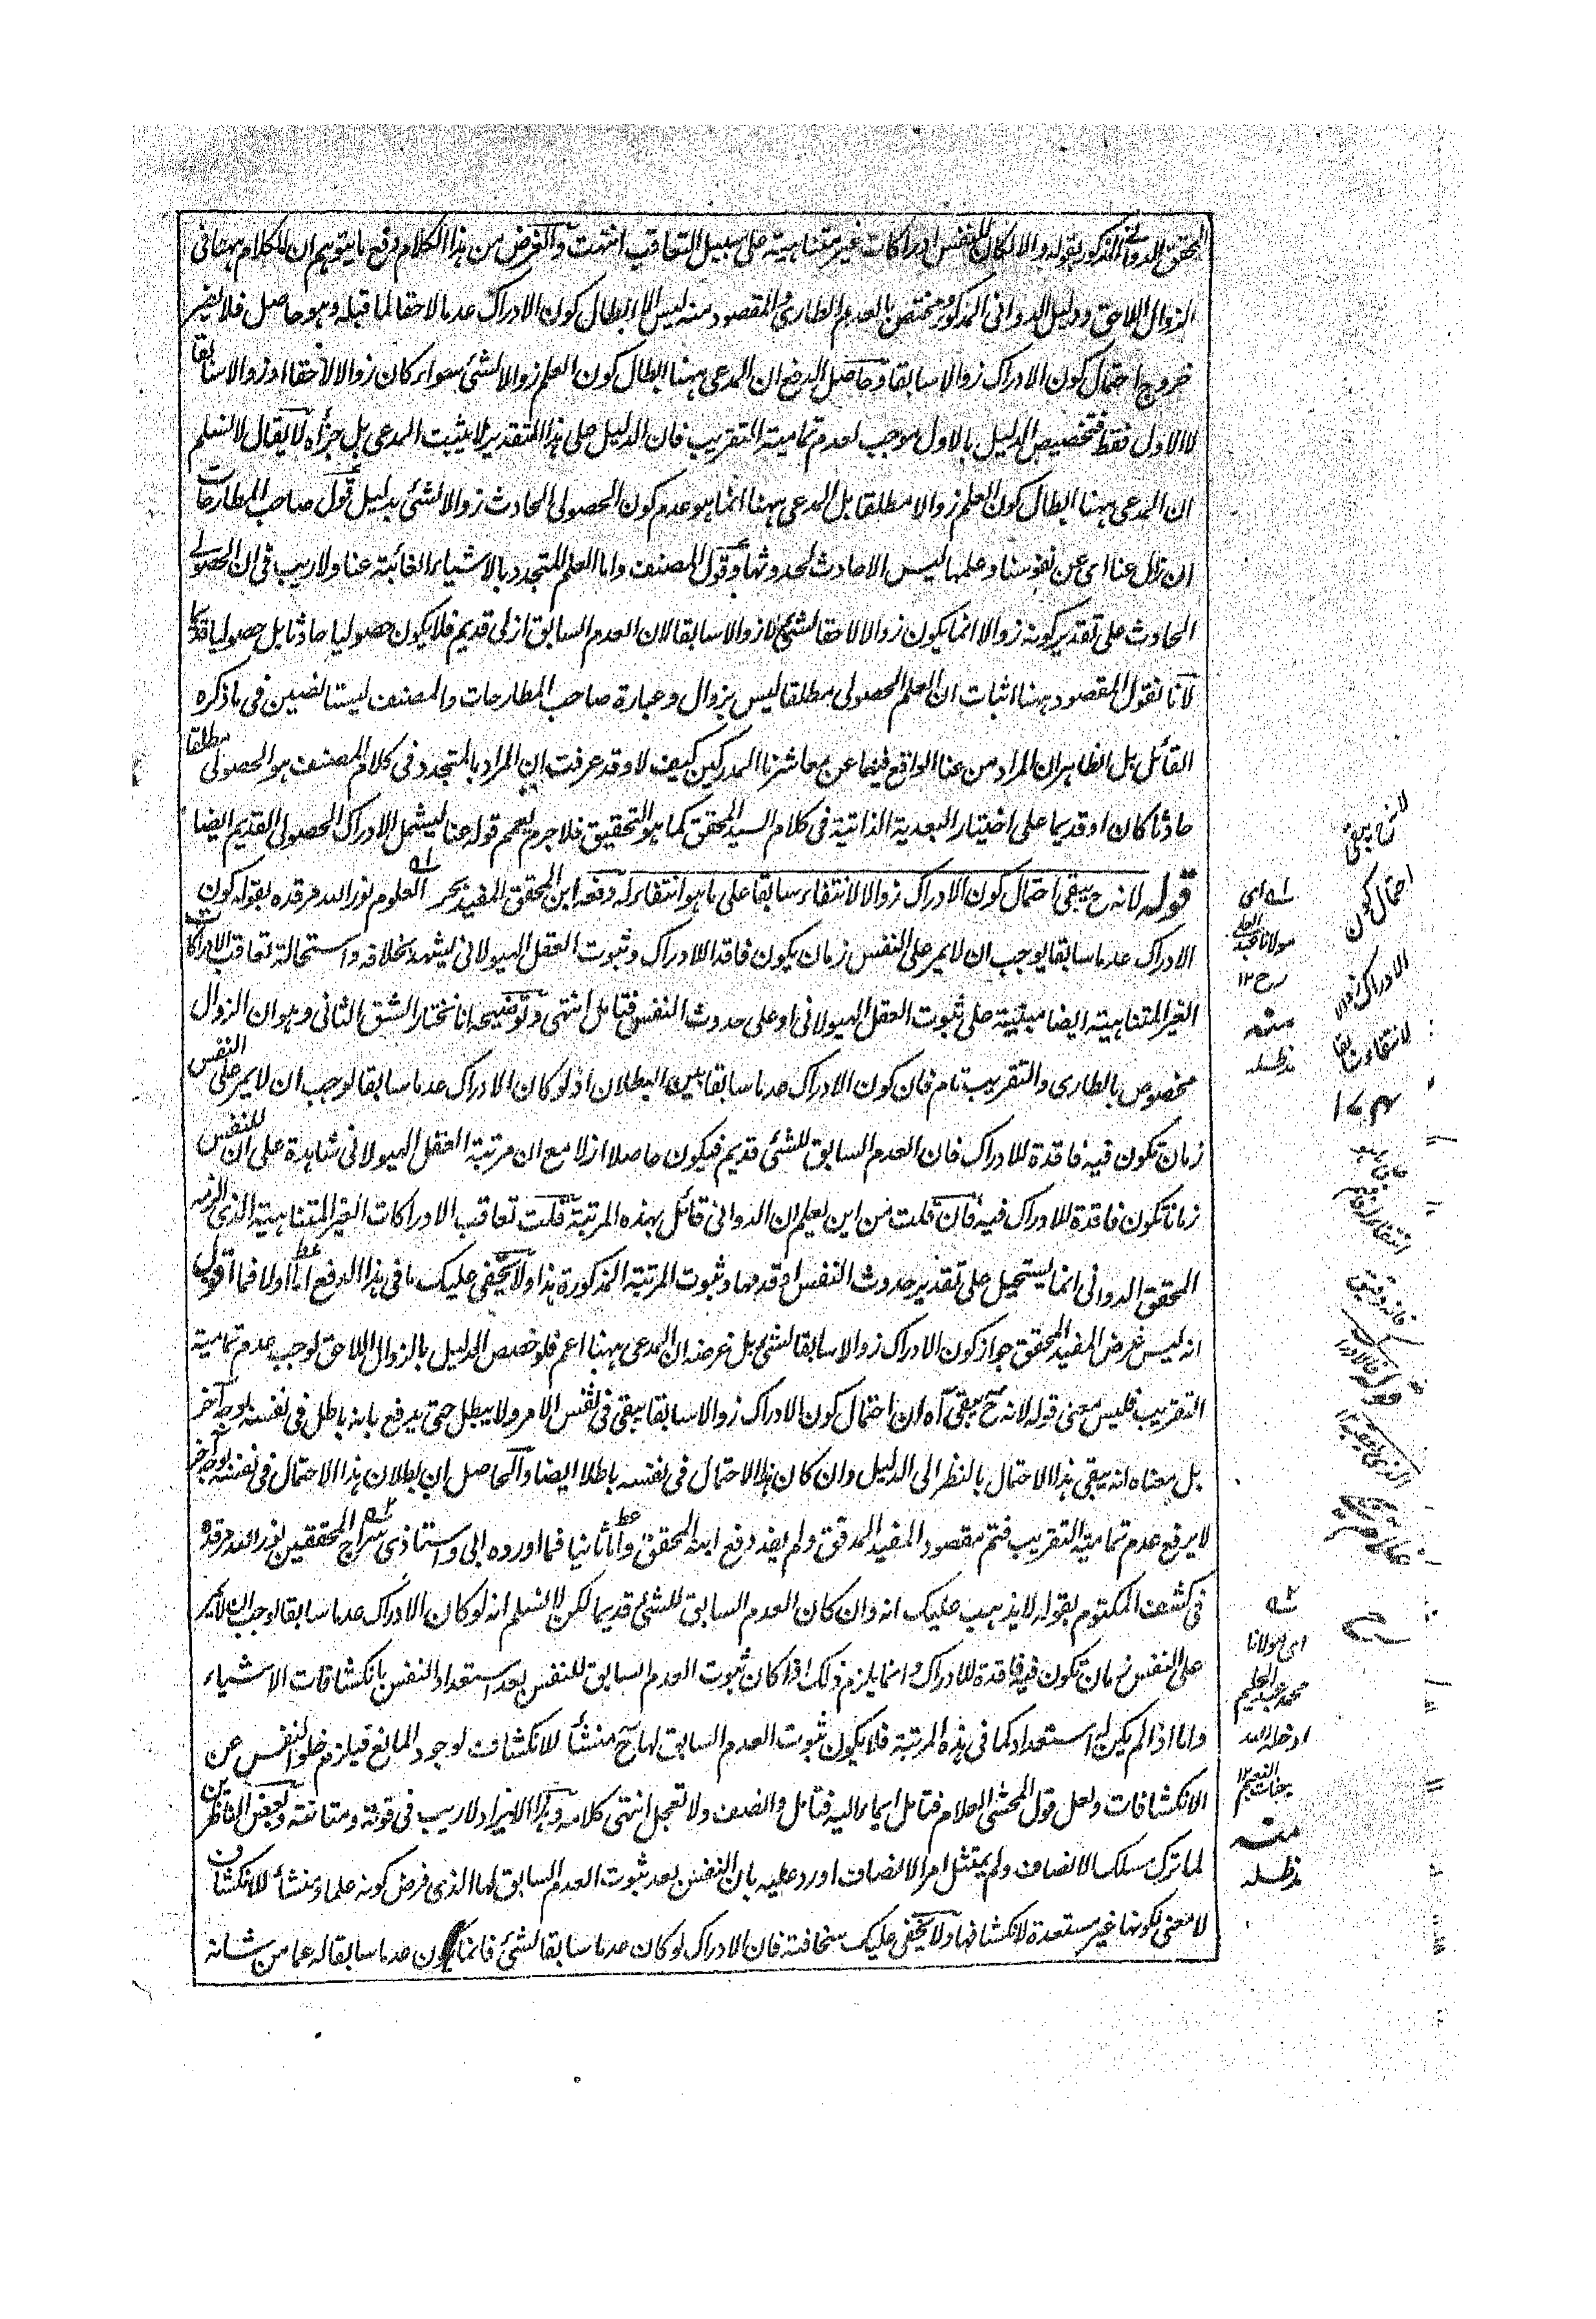 المحقق الدوانى المذكور بقوله والا لكان للنفس ادراكات غير متناهية على سبيل التعاقب انتهت والغرض من هذا الكلام دفع ما يتوهم ان الكلام ههنا فى
الزوال اللاحق ودليل الدوانى المذكور مختص بالعدم الطارى والمقصود منه ليس الا ابطال كون الادراك عدما لاحقا لما قبله وهو حاصل فلا يضر
خروج احتمال كون الادراك زوالا سابقا وحاصل الدفع ان المدعى ههنا ابطال كون العلم زوالا لشئ سواء كان زوالا لاحقا او زوالا سابقا
لا الاول فقط فتخصيص الدليل بالاول موجب لعدم تمامية التقريب فان الدليل على هذا التقدير لا يثبت المدعى بل جزأه لا يقال لا نسلم
ان المدعى ههنا ابطال كون العلم زوالا مطلقا بل المدعى ههنا انما هو عدم كون الحصولى الحادث زوالا لشئ بدليل قول صاحب المطارحات
ان زال عنا اى عن نفوسنا وعلمها ليس الا حادث لحدوثها وقول المصنف واما العلم المتجدد بالاشياء الغائبة عنا ولا ريب فى ان الحصولى
الحادث على تقدير كونه زوالا انما يكون زوالا لاحقا لشئ لا زوالا سابقا لان العدم السابق ازلى قديم فلا يكون حصوليا حادثا بل حصوليا قديما
لانا نقول المقصود ههنا اثبات ان العلم الحصولى مطلقا ليس بزوال وعبارة صاحب المطارحات والمصنف ليستا نصين فى ما ذكره
القائل بل الظاهر ان المراد من عنا الواقع فيهما عن معاشرنا المدركين كيف لا وقد عرفت ان المراد بالمتجدد فى كلام المصنف هو الحصولى مطلقا
حادثا كان او قديما على اختيار البعدية الذاتية فى كلام السيد المحقق كما هو التحقيق فلا جرم يعمم قوله عنا ليشمل الادراك الحصولى القديم ايضا
قوله لانه ح يبقى احتمال كون الادراك زوالا لانتفاء سابقا على ما هو انتفاء له دفعه ابن المحقق المفيد بحر العلوم نور الله مرقده بقوله كون
الادراك عدما سابقا يوجب ان لا يمر على النفس زمان يكون فاقدا للادراك وثبوت العقل الهيولانى يشهد بخلافه واستحالة تعاقب الادراكات
الغير المتناهية ايضا مبنية على ثبوت العقل الهيولانى او على حدوث النفس فتامل انتهى وتوضيحه انا نختار الشق الثانى وهو ان الزوال
مخصوص بالطارى والتقريب تام فان كون الادراك عدما سابقا بين البطلان اذ لو كان الادراك عدما سابقا لوجب ان لا يمر على النفس
زمان تكون فيه فاقدة للادراك فان العدم السابق للشئ قديم فيكون حاصلا ازلا مع ان مرتبة العقل الهيولانى شاهدة على ان للنفس
زمانا تكون فاقدة للادراك فيه فان قلت من اين يعلم ان الدوانى قائل بهذه المرتبة قلت تعاقب الادراكات الغير المتناهية الذى الزمه
المحقق الدوانى انما يستحيل على تقدير حدوث النفس او قدمها وثبوت المرتبة المذكورة هذا ولا يخفى عليك ما فى هذا الدفع اما اولا فما اقول
انه ليس غرض المفيد المحقق جواز كون الادراك زوالا سابقا لشئ بل غرضه ان المدعى ههنا اعم فلو خصص الدليل بالزوال اللاحق لوجب عدم تمامية
التقريب فليس معنى قوله لانه ح يبقى آه ان احتمال كون الادراك زوالا سابقا يبقى فى نفس الامر ولا يبطل حتى يدفع بانه باطل فى نفسه لوجه آخر
بل معناه انه يبقى هذا الاحتمال بالنظر الى الدليل وان كان هذا الاحتمال فى نفسه باطلا ايضا والحاصل ان بطلان هذا الاحتمال فى نفسه لوجه آخر
لا يرفع عدم تمامية التقريب فتم مقصود المفيد المدقق ولم يفد دفع ابنه المحقق واما ثانيا فما اورده ابى واستاذى سراج المحققين نور الله مرقده
فى كشف المكتوم بقوله لا يذهب عليك انه وان كان العدم السابق للشئ قديما لكن لا نسلم انه لو كان الادراك عدما سابقا لوجب ان لا يمر
على النفس زمان تكون فيه فاقدة للادراك وانما يلزم ذلك اذا كان ثبوت العدم السابق للنفس بعد استعداد النفس بانكشافات الاشياء
واما اذا لم يكن له استعداد كما فى هذه المرتبة فلا يكون ثبوت العدم السابق لها ح منشأ للانكشاف لوجود المانع فيلزم خلو النفس عن
الانكشافات ولعل قول المحشى العلام فتامل ايماء اليه فتامل وانصف ولا تعجل انتهى كلامه وهذا الايراد لا ريب فى قوته ومتانته وبعض الناظرين
لما ترك مسلك الانصاف ولم يمتثل امر الانصاف اورد عليه بان النفس بعد ثبوت العدم السابق لها الذى فرض كونه علما ومنشأ للانكشاف
لا معنى لكونها غير مستعدة لانكشافها ولا يخفى عليك سخافته فان الادراك لو كان عدما سابقا لشئ فانما يكون عدما سابقا له عما من شانه
لانه ح يبقى
احتمال كون
الادراك زوالا
لانتفاء سابقا
اى
مولانا عبد العلى
رح ١٢
منه
مدظله
اى مولانا
محمد عبد الحليم
ادخله الله
بجنات النعيم ١٢
منه
مدظله